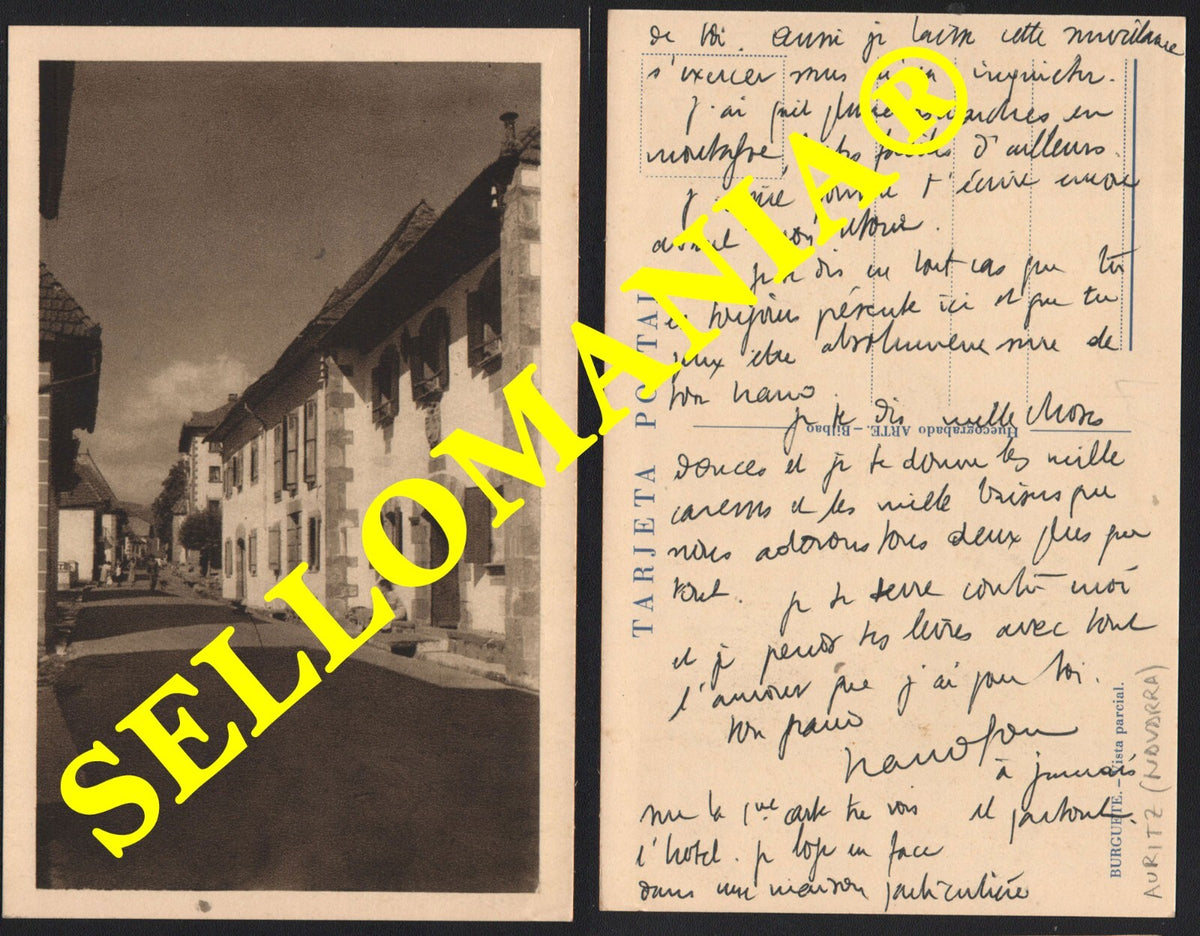 SELLOMANIA®
de toi. aussi je laisse cette surveillance
s'exercer sans m'en inquieter.
J'ai fait plusieurs marches en
montagne, très faciles d'ailleurs.
t'écrire encore
avant mon retour.
je te dis en tout cas que tu
es toujours présente ici et que tu
peux etre absolument sure de
ton nano.
je te dis mille choses
douces et je te donne les mille
caresses et les mille baisers que
nous adorons tous deux plus que
tout. je te serre contre moi
et je prends tes levres avec tout
l'amour que j'ai pour toi.
ton nano
à jamais
et partout.
sur la 1ère carte tu vois
l'hotel. je loge en face
dans une maison particulière
TARJETA POSTAL
Huecograbado ARTE. - Bilbao
BURGUETE. - Vista parcial.
AURITZ (NAVARRA)